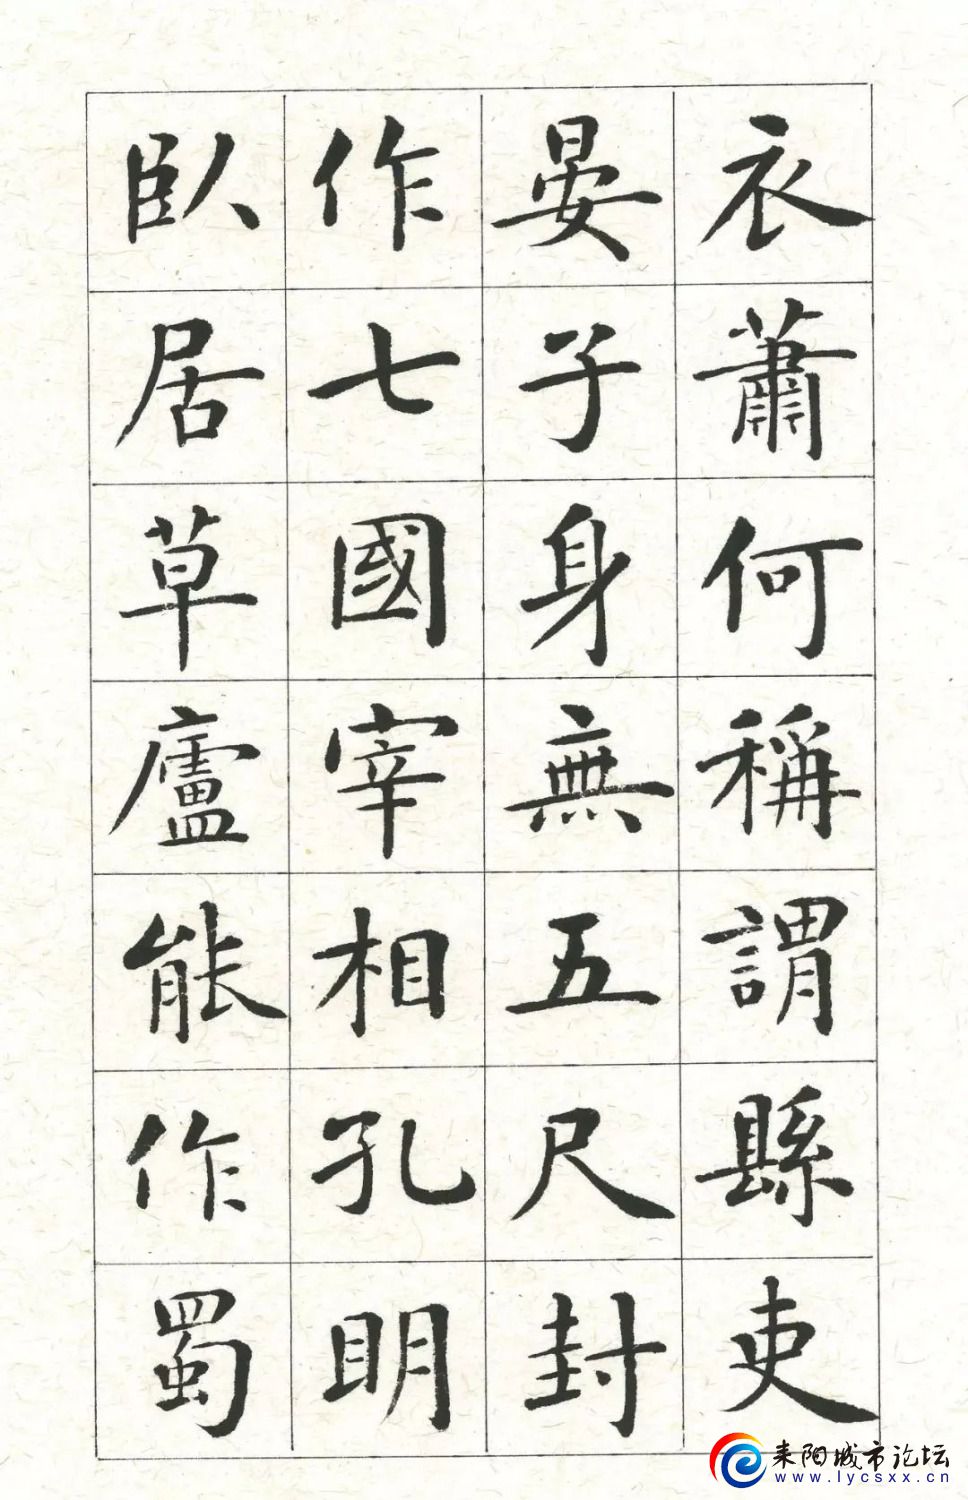 衣蕭何稱謂縣吏
晏子身無五尺封
作七國宰相孔明
臥居草廬能作蜀
耒阳城市论坛
www.lycsxx.cn